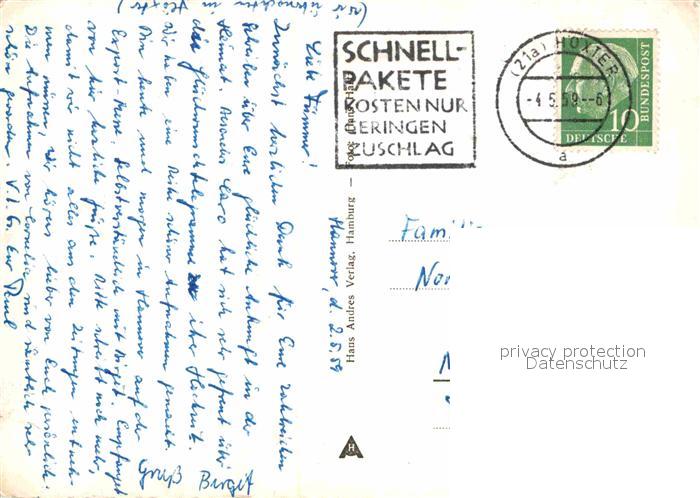 (wir übernachten in Höxter)
SCHNELL-
PAKETE
KOSTEN NUR
GERINGEN
ZUSCHLAG
(21a) HÖXTER
-4.5.59.--6
a
10
DEUTSCHE
BUNDESPOST
Hannover, d. 2.5.59
Liebe
Zunächst herzlichen Dank für Eure zahlreichen
Schreiben über Eure glückliche Ankunft in der
Heimat. Besonders hat sich sehr gefreut über
das Glückwunschtelegramm zu ihrer Hochzeit.
Wir haben eine Reihe schöner Aufnahmen gemacht.
Bin heute und morgen in Hannover auf der
Export-Messe, selbstverständlich mit Birgit. Empfanget
von hier herzliche Grüße. Bitte schreibt noch mehr,
damit wir nicht alles aus den Zeitungen entneh-
men müssen, wir hören lieber von Euch persönlich.
Die Aufnahmen von Cornelia sind sehr
schön geworden. Euer
Gruß Birgit
Haus Andres Verlag, Hamburg —
Fami
No
privacy protection
Datenschutz
H